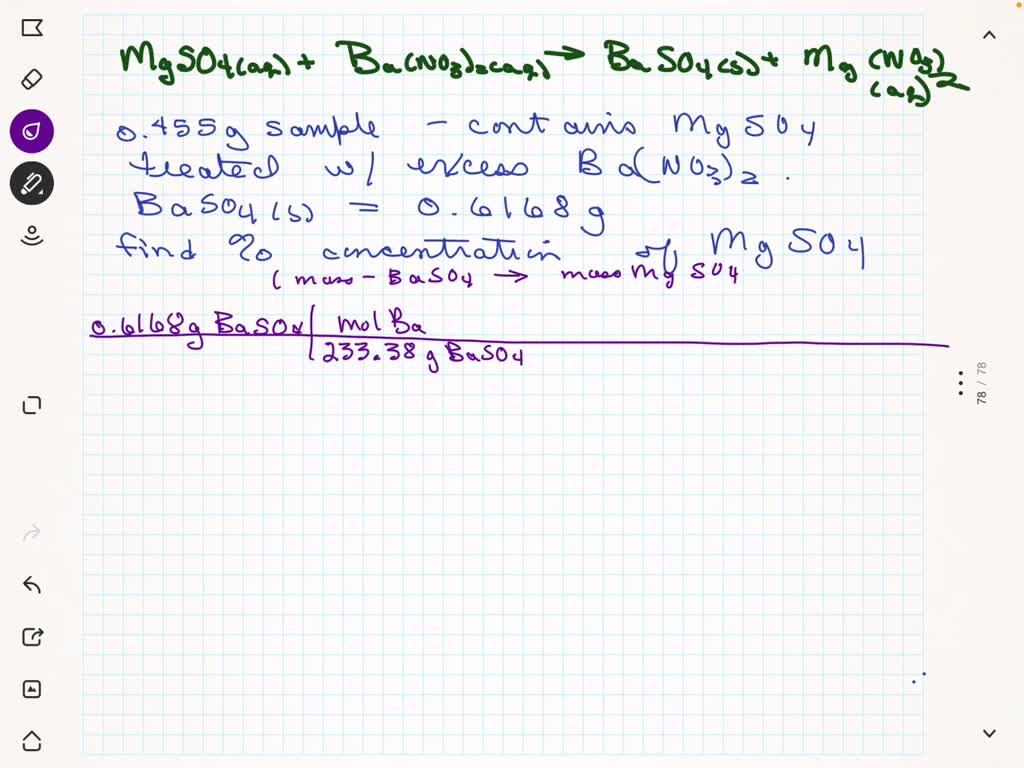 MgSO4(aq) + Ba(NO3)2(aq) → BaSO4(s) + Mg(NO3)2
(aq)
0.455g sample - contains MgSO4
treated w/ excess Ba(NO3)2.
BaSO4(s) = 0.6168g
find % concentration of MgSO4
(mass - BaSO4 → mass MgSO4
0.6168g BaSO4 | mol Ba
233.38 g BaSO4
78 / 78